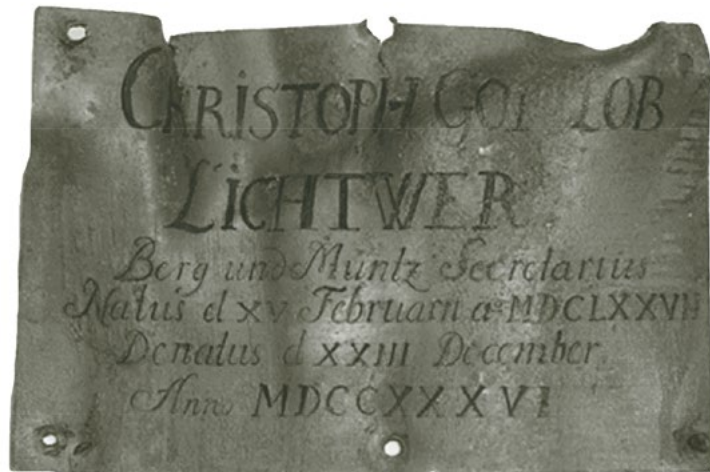 CHRISTOPH GOTTLOB
LICHTWER
Berg und Müntz Secretarius
Natus d XV Februarii a MDCLXXVII
Denatus d XXIII December
Anno MDCCXXXVI